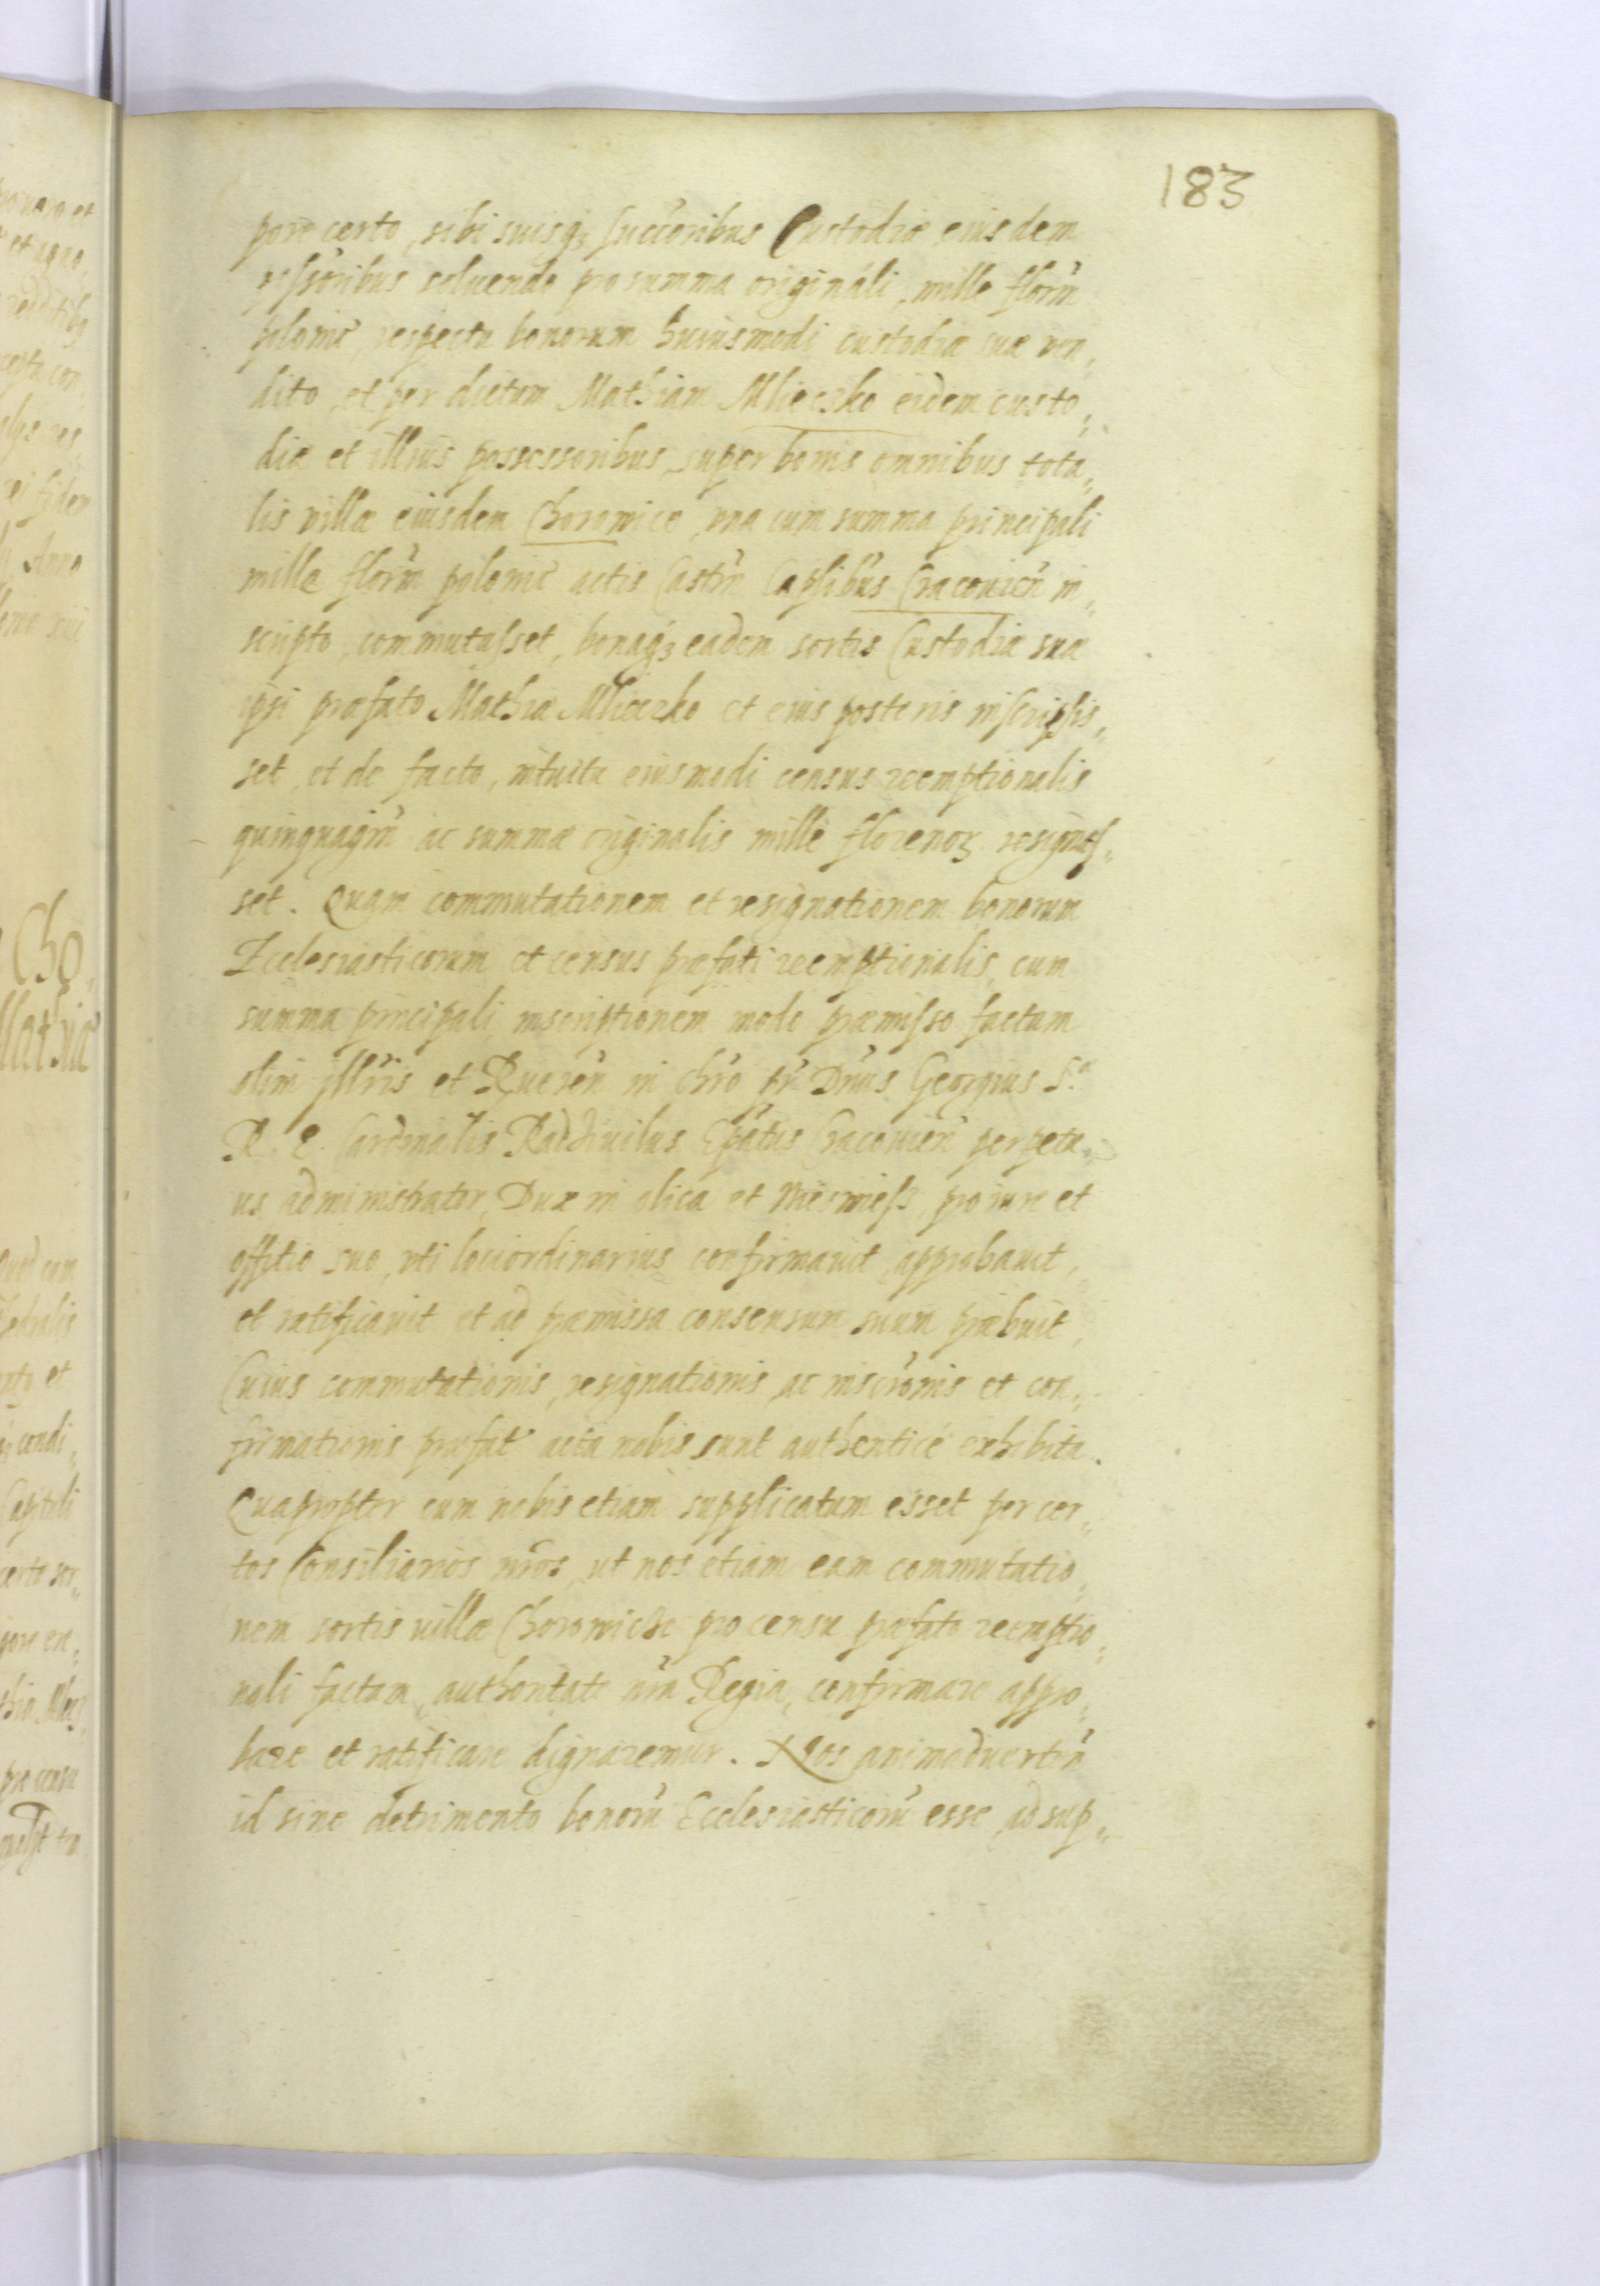 183
pore certo, sibi suisq₃ successoribus Custodiæ eiusdem
possoribus soluendo pro summa originali, mille florū
polonic̄, respectu bonorum huiusmodi custodiæ suæ ven„
dito, et per dictum Mathiam Mlieczko eidem custo„
diæ et illius possessoribus super bonis omnibus tota„
lis villæ eiusdem Choronice, vna cum summa principali
mille florū polonic̄ actis Castrn̄ Capsibus Cracouien̄ in„
scripto, commutasset, bonaq₃ eadem sortis Custodiæ suæ
ipsi præfato Mathiæ Mlieczko et eius posteris inscripsis„
set, et de facto, intuitu eiusmodi census reemptionalis
quinquagin̄ ac summæ originalis mille florenoꝝ resignas„
set. Quam commutationem et resignationem bonorum
Ecclesiasticorum et census præfati reemptionalis, cum
summa principali, inscriptionem modo præmisso factam
olim Illrīs et Rueren̄ in Chrō pr̄ Dn̄us Georgius S.ᵃ
R. E. Cardinalis Radziuilus Epātus Cracouien̄ perpetu„
us administrator, Dux in Olica et Nieswiess, pro iure et
offitio suo, vti loci ordinarius confirmauit, approbauit,
et ratificauit et ad præmissa consensum suum præbuit,
Cuius commutationis, resignationis, ac inscrōnis et con„
firmationis præfat̄ acta nobis sunt authenticé exhibita.
Quapropter cum nobis etiam supplicatum esset per cer„
tos Consiliarios nr̄os, ut nos etiam eam commutatio„
nem sortis villæ Choronicze pro censu præfato reemptio„
nali factam, authoritate nr̄a Regia, confirmare appro„
bare et ratificare dignaremur. Nos animaduerten̄
id sine detrimento bonorū Ecclesiasticorū esse, ad sup„